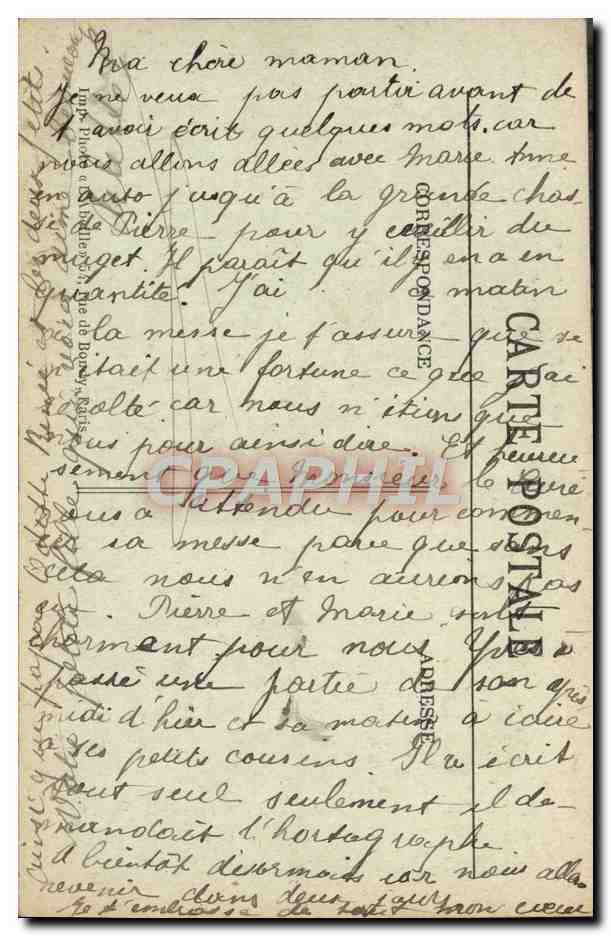 Ma chère maman.
Je ne veux pas partir avant de
t'avoir écrit quelques mots. car
nous allons allées avec Marie Anne
en auto jusqu'à la grande chas-
de Pierre pour y cueillir du
muguet. Il paraît qu'il y en a en
quantité. J'ai matin
la messe je t'assure que se
n'était une fortune ce que j'ai
récolté car nous n'étions que
nous pour ainsi dire. Et heureu
sement que Monsieur le curé
nous a attendu pour commen-
sa messe parce que sans
cela nous n'en aurions pas
eu. Pierre et Marie sont
charment pour nous. Yves a
passé une partie de son après
midi d'hier et sa matin à écrire
à ses petits cousins. Il a écrit
tout seul seulement il de-
mandait l'hortographe
A bientôt désormais car nous allons
revenir dans deux jours
Je t'embrasse de tout mon cœur
ainsi que papa Odette René et les deux petits.
Votre petite fille qui vous aime beaucoup
CARTE POSTALE
CORRESPONDANCE
ADRESSE
rue de Bondy, Paris
CPARAPHIL